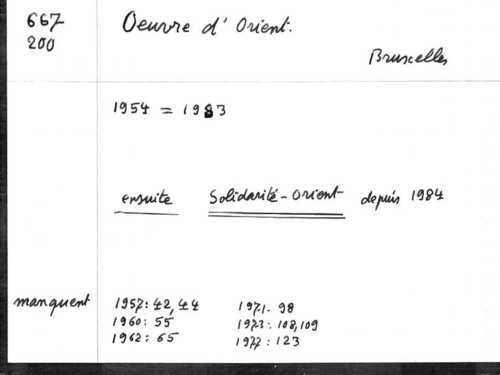 667 Oeuvre d'Orient.
200
Bruxelles
1954 = 1983
ensuite Solidarité-Orient depuis 1984
manquent 1957: 42, 44 1971-98
1960: 55 1973: 108,109
1962: 65 1977: 123